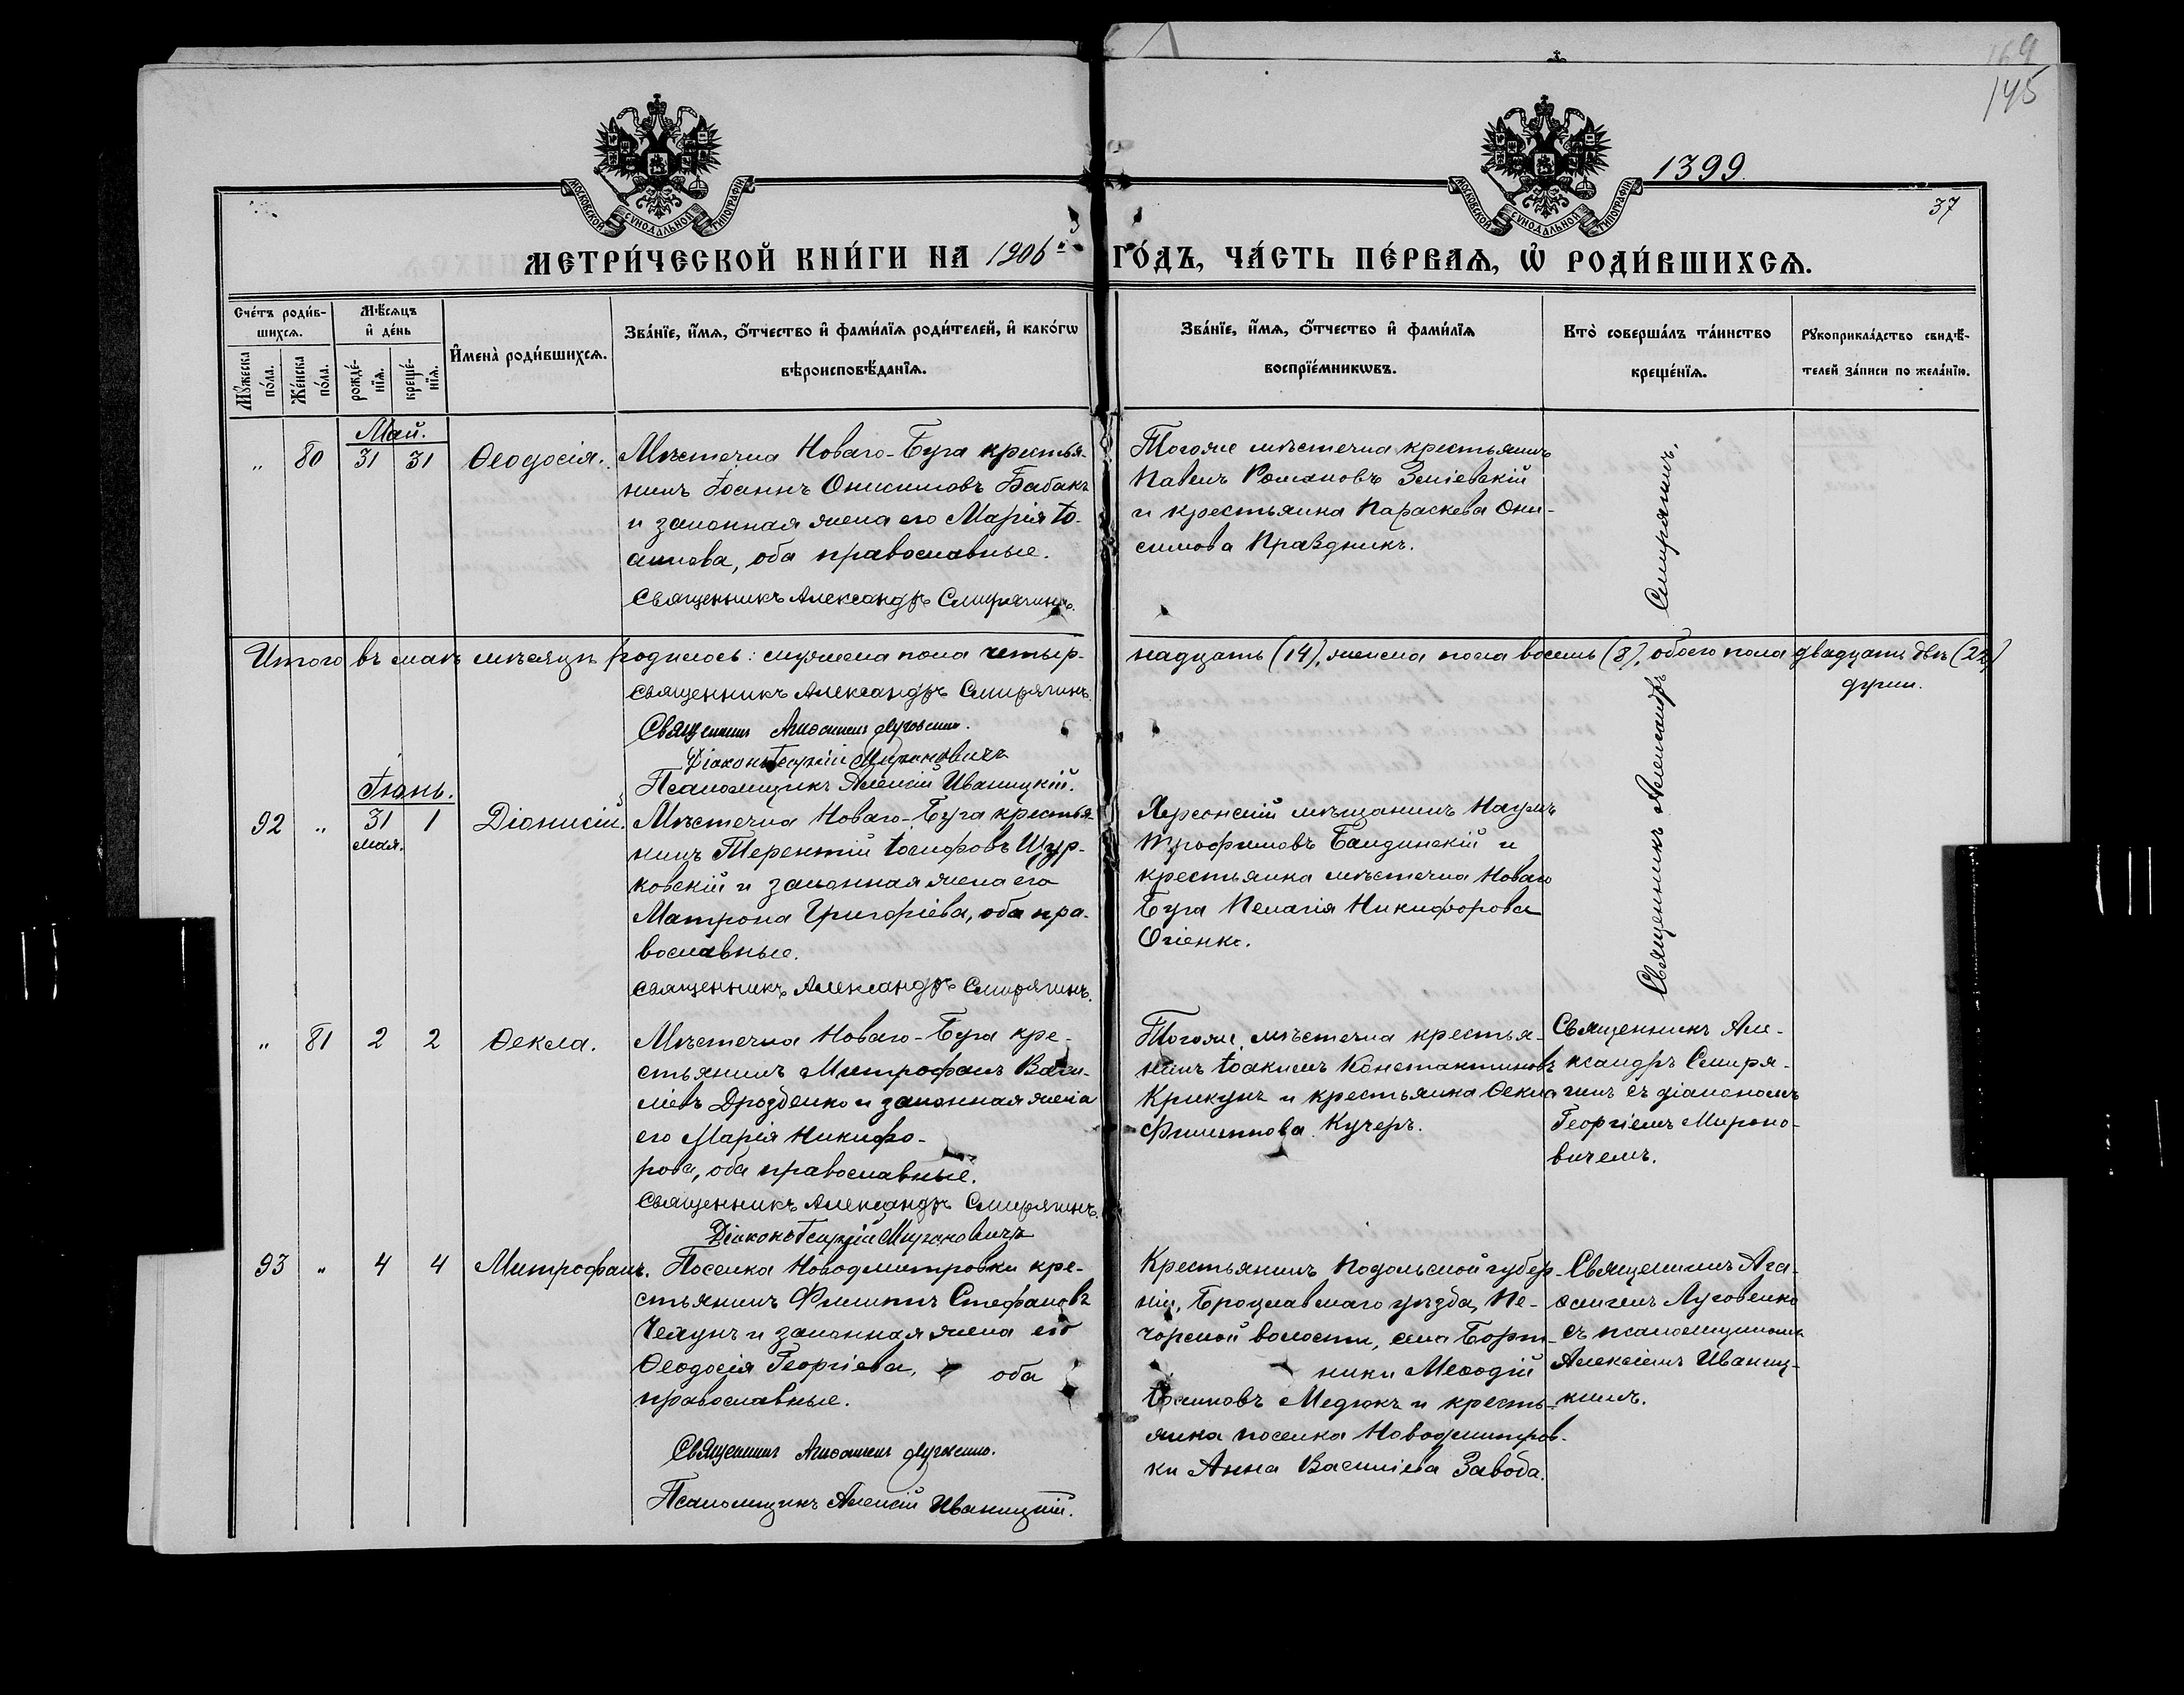 169
145
1399
37
МОСКОВСКОЙ СѴНОДАЛЬНОЙ ТИПОГРАФІИ
МОСКОВСКОЙ СѴНОДАЛЬНОЙ ТИПОГРАФІИ
МЕТРИ́ЧЕСКОЙ КНИ́ГИ НА 1906й ГО́ДЪ, ЧА́СТЬ ПЕ́РВАѦ, Ѡ҆ РОДИ́ВШИХСѦ.
Сче́тъ роди́в-
шихсѧ.
Мꙋ́жеска по́ла.
Же́нска по́ла.
Мѣ́сѧцъ и҆ де́нь
рожде́-нїѧ.
креще́-нїѧ.
И҆мена̀ роди́вшихсѧ.
Зва́нїе, и҆́мѧ, ѻ҆́тчество и҆ фами́лїѧ роди́телей, и҆ како́гѡ
вѣроисповѣ́данїѧ.
Зва́нїе, и҆́мѧ, ѻ҆́тчество и҆ фами́лїѧ
воспрїе́мникѡвъ.
Кто̀ соверша́лъ та́инство
креще́нїѧ.
Рꙋкоприкла́дство свидѣ́-
телей за́писи по жела́нїю.
Май.
„ 80 31 31 Ѳеодосія.
Мѣстечка Новаго-Буга крестья-
нинъ Іоаннъ Онисимовъ Бабакъ
и законная жена его Марія Іо-
аннова, оба православные.
Священникъ Александръ Смирягинъ.
Тогоже мѣстечка крестьянинъ
Павелъ Романовъ Зміевскій
и крестьянка Параскева Они-
симова Праздникъ.
Священникъ Александръ Смирягинъ.
Итого въ маѣ мѣсяцѣ родилось: мужеска пола четыр-
надцать (14), женска пола восемь (8), обоего пола двадцать двѣ (22)
души.
Священникъ Александръ Смирягинъ.
Священникъ Луговенко.
Діаконъ Георгій Мироновичъ
Псаломщикъ Алексій Иваницкій.
Іюнь.
92 „ 31 1 Діонисій.
мая.
Мѣстечка Новаго-Буга крестья-
нинъ Терентій Іосифовъ Щур-
ковскій и законная жена его
Матрона Григоріева, оба пра-
вославные.
Священникъ Александръ Смирягинъ.
Херсонскій мѣщанинъ Наумъ
Трофимовъ Бандинскій и
крестьянка мѣстечка Новаго
Буга Пелагія Никифорова
Огіенко.
„ 81 2 2 Ѳекла.
Мѣстечка Новаго-Буга кре-
стьянинъ Митрофанъ Васи-
ліевъ Дрозденко и законная жена
его Марія Никифо-
рова, оба православные.
Священникъ Александръ Смирягинъ.
Діаконъ Георгій Мироновичъ
Тогоже мѣстечка крестья-
нинъ Іоакимъ Константиновъ
Крикунъ и крестьянка Ѳекла
Филиппова Кучеръ.
Священникъ Але-
ксандръ Смиря-
гинъ съ діакономъ
Георгіемъ Мироно-
вичемъ.
93 „ 4 4 Митрофанъ.
Поселка Новодмитровки кре-
стьянинъ Филиппъ Стефановъ
Чекунъ и законная жена его
Ѳеодосія Георгіева, оба
православные.
Священникъ Луговенко.
Псаломщикъ Алексій Иваницкій.
Крестьянинъ Подольской губер-
ніи, Брацлавскаго уѣзда, Пе-
чорской волости, села Борт-
ники Меѳодій
Іосиповъ Медюкъ и кресть-
янка поселка Новодмитров-
ки Анна Василіева Завода.
Священникъ Ага-
ѳангелъ Луговенко
съ псаломщикомъ
Алексіемъ Иваниц-
кимъ.